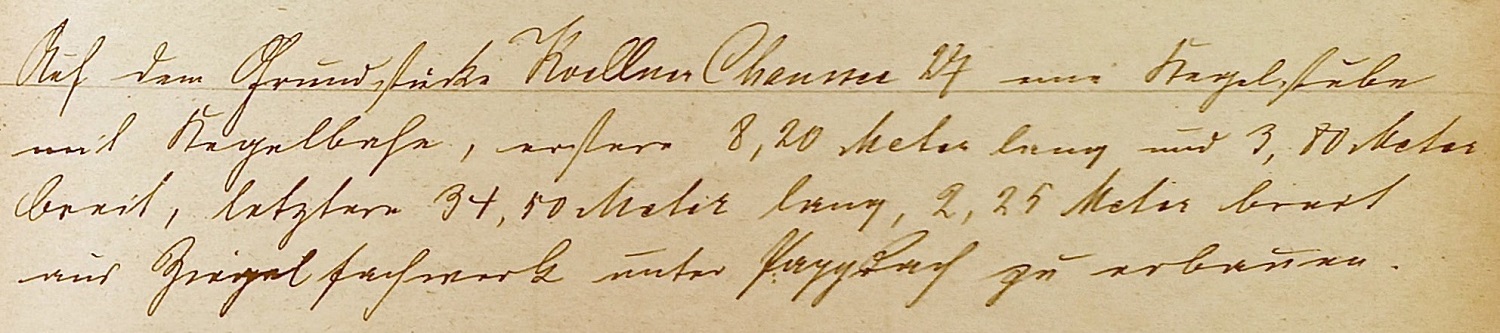 Auf dem Grundstücke Koellner Chaussee 27 eine Kegelstube
mit Kegelbahn, erstere 8,20 Meter lang und 3,80 Meter
breit, letztere 34,50 Meter lang, 2,25 Meter breit
aus Ziegelfachwerk unter Pappdach zu erbauen.